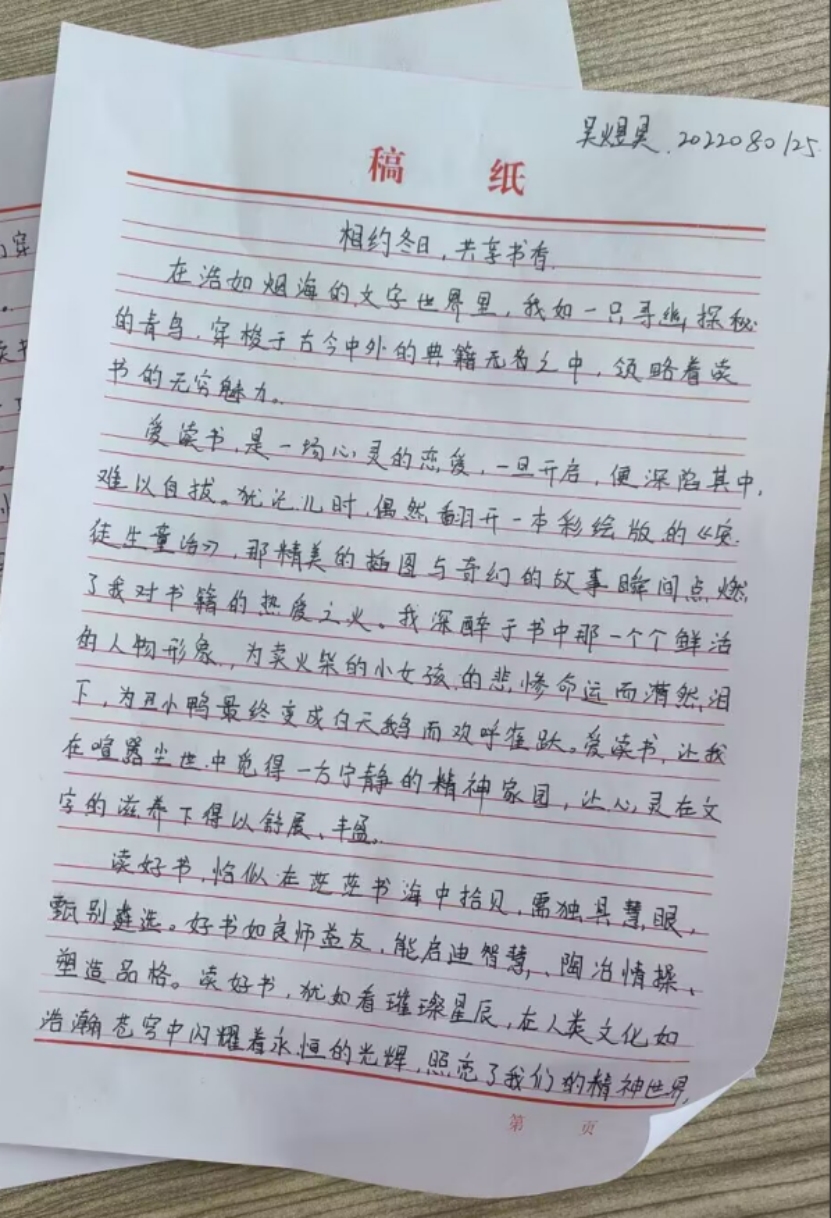 吴煜昊 2022080125
稿 纸
相约冬日，共享书香
在浩如烟海的文字世界里，我如一只寻幽探秘
的青鸟，穿梭于古今中外的典籍无名之中，领略着读
书的无穷魅力。
爱读书，是一场心灵的恋爱，一旦开启，便深陷其中，
难以自拔。犹记儿时，偶然翻开一本彩绘版的《安
徒生童话》，那精美的插图与奇幻的故事瞬间点燃
了我对书籍的热爱之火。我深醉于书中那一个个鲜活
的人物形象，为卖火柴的小女孩的悲惨命运而潸然泪
下，为丑小鸭最终变成白天鹅而欢呼雀跃。爱读书，让我
在喧嚣尘世中觅得一方宁静的精神家园，让心灵在文
字的滋养下得以舒展、丰盈。
读好书，恰似在茫茫书海中拾贝，需独具慧眼，
甄别遴选。好书如良师益友，能启迪智慧、陶冶情操、
塑造品格。读好书，犹如看璀璨星辰，在人类文化如
浩瀚苍穹中闪耀着永恒的光辉，照亮了我们的精神世界，
第 页